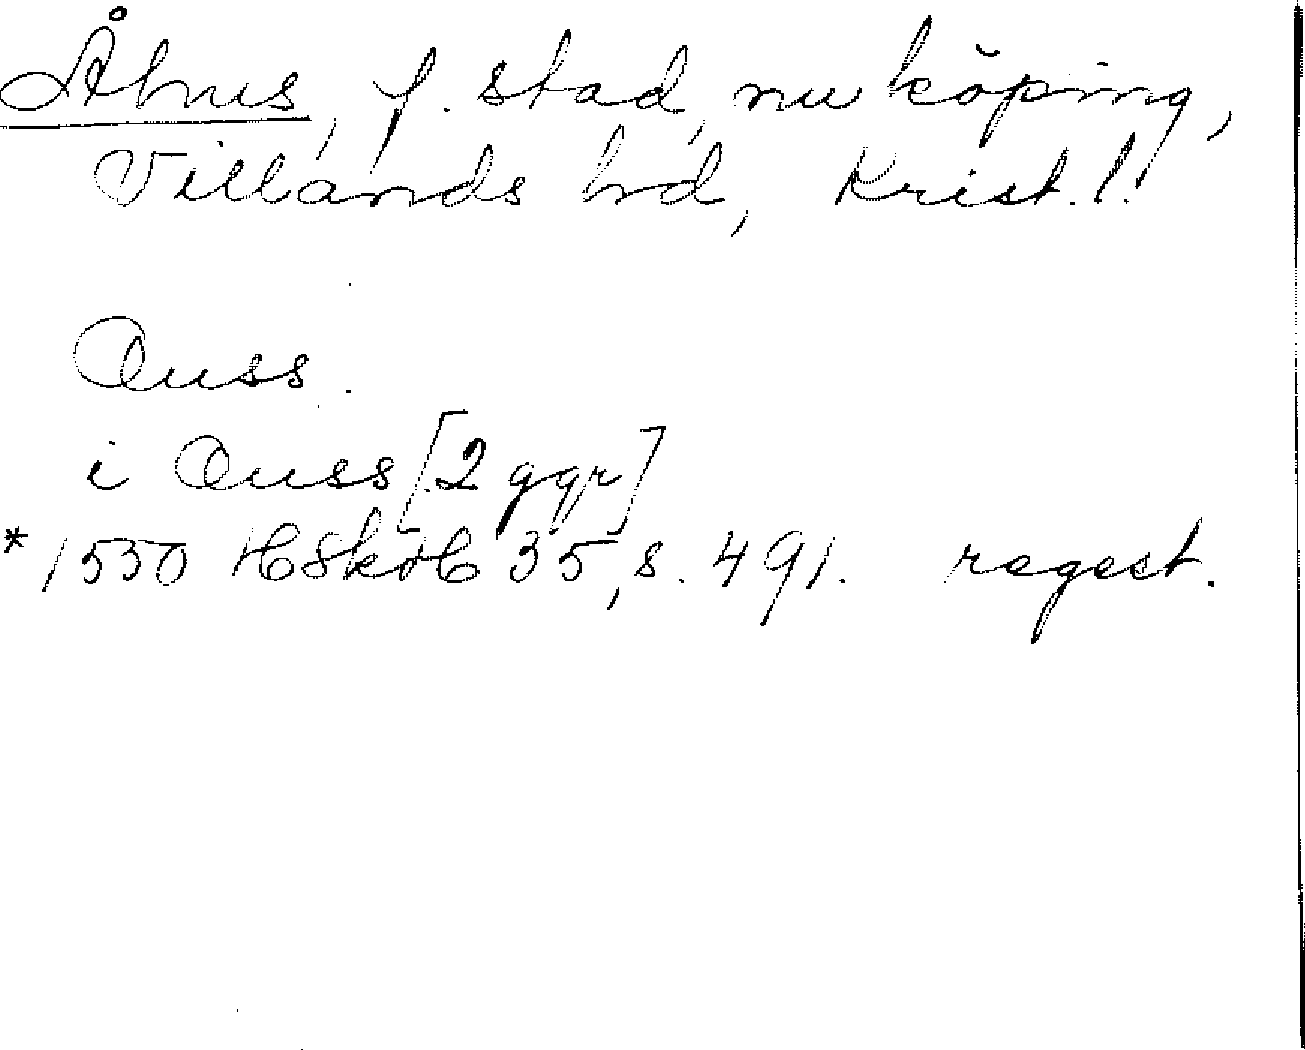 Åhus, f. stad, nu köping,
Villands hd, Krist. l.
Ouss
i Ouss [2 ggr]
*1530 HSkoB 35, s. 491. regest.